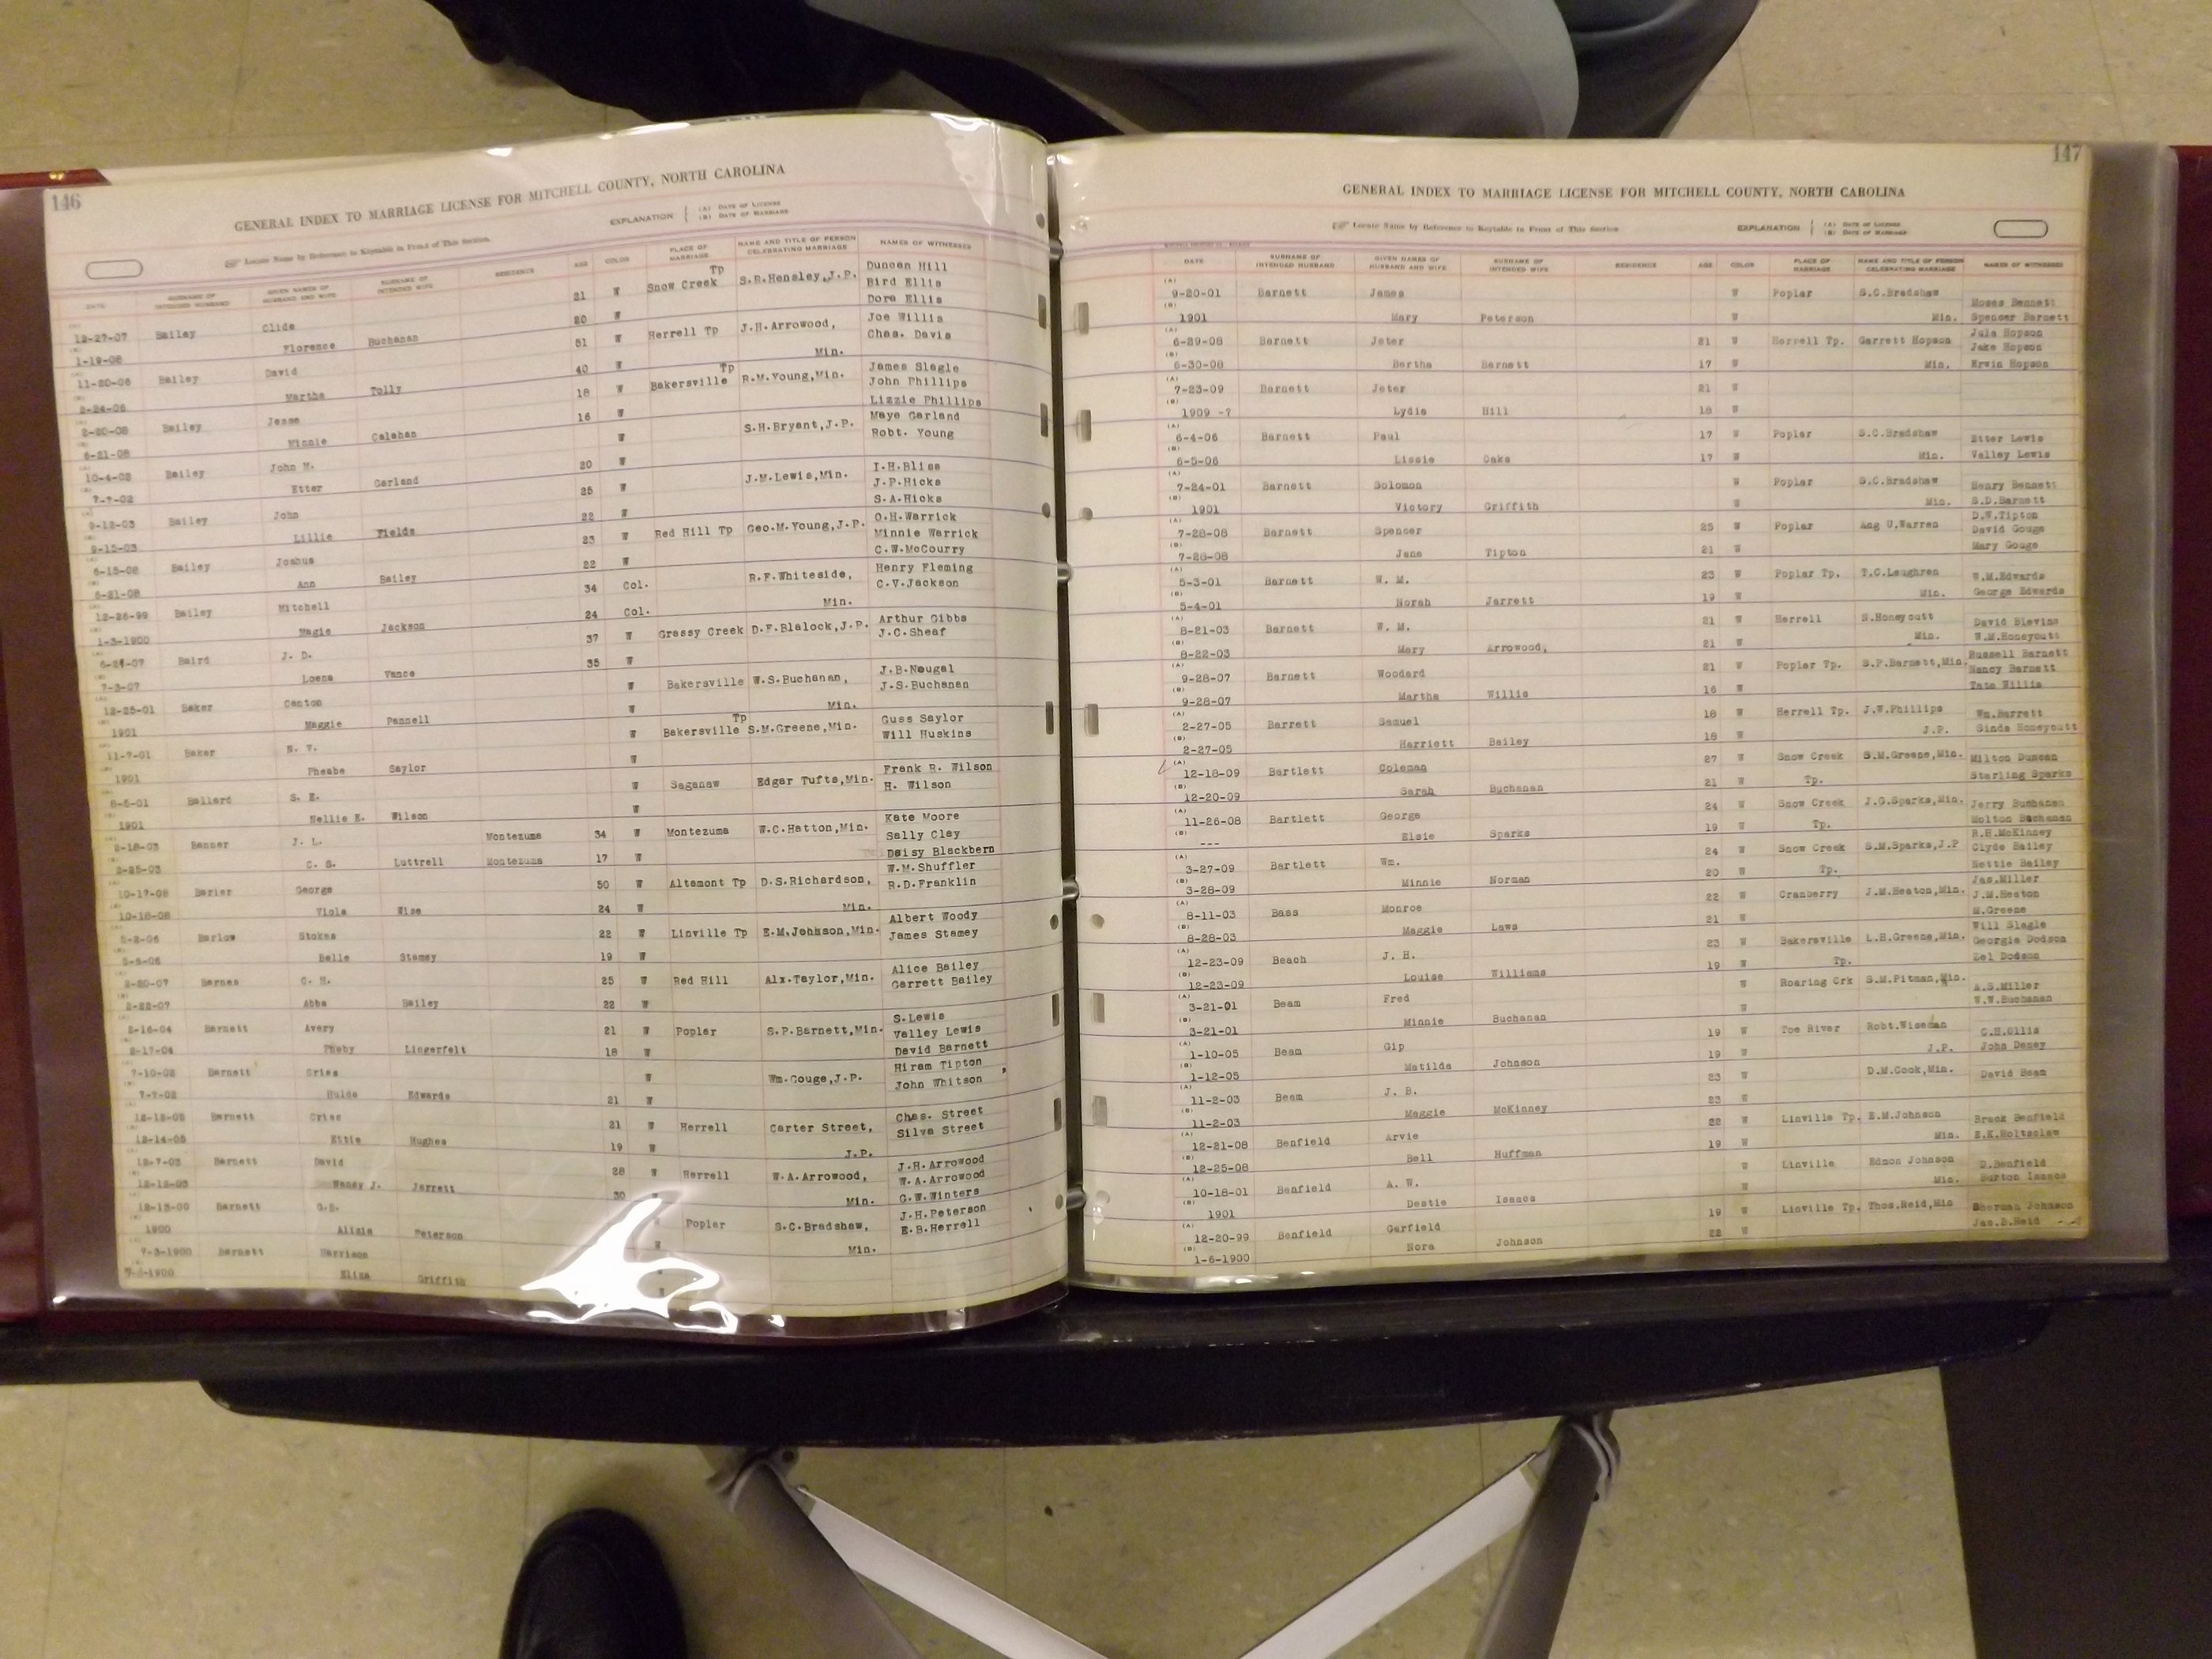 146
GENERAL INDEX TO MARRIAGE LICENSE FOR MITCHELL COUNTY, NORTH CAROLINA
Locate Name by Reference to Keytable in Front of This Section
EXPLANATION (A) DATE OF LICENSE
(B) DATE OF MARRIAGE
DATE SURNAME OF INTENDED HUSBAND GIVEN NAMES OF HUSBAND AND WIFE SURNAME OF INTENDED WIFE RESIDENCE AGE COLOR PLACE OF MARRIAGE NAME AND TITLE OF PERSON CELEBRATING MARRIAGE NAMES OF WITNESSES
12-27-07 Bailey Clide 21 W Snow Creek Tp S.R.Hensley,J.P. Duncan Hill
Bird Ellis
1-19-08 Florence Buchanan 20 W Dore Ellis
11-20-06 Bailey David 51 W Herrell Tp J.H.Arrowood, Joe Willis
Chas. Davis
2-24-06 Martha Tolly 40 W Min.
2-20-08 Bailey Jesse 18 W Bakersville Tp R.M.Young,Min. James Slagle
John Phillips
6-21-08 Minnie Calahan 16 W Lizzie Phillips
10-4-02 Bailey John M. W S.H.Bryant,J.P. Maye Garland
Robt. Young
7-7-02 Etter Garland 20 W
9-12-03 Bailey John 25 W J.M.Lewis,Min. I.H.Bliss
J.P.Hicks
9-15-03 Lillie Fields 22 W S.A.Hicks
6-15-08 Bailey Joshus 23 W Red Hill Tp Geo.M.Young,J.P. O.H.Warrick
Minnie Warrick
6-21-08 Ann Bailey 22 W C.W.McCourry
12-26-99 Bailey Mitchell 34 Col. R.F.Whiteside, Henry Fleming
C.V.Jackson
1-3-1900 Magie Jackson 24 Col. Min.
6-24-07 Baird J. D. 37 W Grassy Creek D.F.Blalock,J.P. Arthur Gibbs
J.C.Sheaf
7-3-07 Loena Vance 35 W
12-25-01 Baker Canton W Bakersville W.S.Buchanan, J.B.Nougal
J.S.Buchanan
1901 Maggie Pannell W Min.
11-7-01 Baker N. V. W Bakersville Tp S.M.Greene,Min. Guss Saylor
Will Huskins
1901 Pheabe Saylor W
8-5-01 Ballard S. E. W Saganaw Edgar Tufts,Min. Frank R. Wilson
H. Wilson
1901 Nellie E. Wilson W
2-18-03 Banner J. L. Montezuma 34 W Montezuma W.C.Hatton,Min. Kate Moore
Sally Clay
2-25-03 C. S. Luttrell Montezuma 17 W Daisy Blackbern
10-17-08 Barier George 50 W Altamont Tp D.S.Richardson, W.M.Shuffler
R.D.Franklin
10-18-08 Viola Wise 24 W Min.
5-2-06 Barlow Stokes 22 W Linville Tp E.M.Johnson,Min. Albert Woody
James Stamey
5-6-06 Belle Stamey 19 W
2-20-07 Barnes C. H. 25 W Red Hill Alx.Taylor,Min. Alice Bailey
Garrett Bailey
2-22-07 Abba Bailey 22 W
2-16-04 Barnett Avery 21 W Poplar S.P.Barnett,Min. S.Lewis
Valley Lewis
2-17-04 Pheby Lingerfelt 18 W David Barnett
7-10-02 Barnett Cries W Wm.Gouge,J.P. Hiram Tipton
John Whitson
7-7-02 Hulda Edwards 21 W
12-12-05 Barnett Cries 21 W Herrell Carter Street, Chas. Street
Silva Street
12-14-05 Ettie Hughes 19 W J.P.
12-7-03 Barnett David 28 W Herrell W.A.Arrowood, J.H.Arrowood
W.A.Arrowood
12-12-03 Nancy J. Jarrett 30 W Min. G.W.Winters
12-13-00 Barnett G.B. W Poplar S.C.Bradshaw, J.H.Peterson
E.B.Herrell
1900 Alizie Peterson W Min.
7-3-1900 Barnett Harrison
1900 Eliza Griffith
147
GENERAL INDEX TO MARRIAGE LICENSE FOR MITCHELL COUNTY, NORTH CAROLINA
Locate Name by Reference to Keytable in Front of This Section
EXPLANATION (A) DATE OF LICENSE
(B) DATE OF MARRIAGE
DATE SURNAME OF INTENDED HUSBAND GIVEN NAMES OF HUSBAND AND WIFE SURNAME OF INTENDED WIFE RESIDENCE AGE COLOR PLACE OF MARRIAGE NAME AND TITLE OF PERSON CELEBRATING MARRIAGE NAMES OF WITNESSES
(A) 9-20-01 Barnett James W Poplar S.C.Bradshaw Moses Bennett
(B) 1901 Mary Peterson W Min. Spencer Barnett
(A) 6-29-08 Barnett Jeter 21 W Herrell Tp. Garrett Hopson Jula Hopson
Jake Hopson
(B) 6-30-08 Bertha Barnett 17 W Min. Ervin Hopson
(A) 7-23-09 Barnett Jeter 21 W
(B) 1909 -? Lydia Hill 18 W
(A) 6-4-06 Barnett Paul 17 W Poplar S.C.Bradshaw Etter Lewis
(B) 6-5-06 Lissie Oaks 17 W Min. Valley Lewis
(A) 7-24-01 Barnett Solomon W Poplar S.C.Bradshaw Henry Bennett
(B) 1901 Victory Griffith W Min. S.D.Barnett
(A) 7-28-08 Barnett Spencer 25 W Poplar Ang O.Warren D.W.Tipton
David Gouge
(B) 7-28-08 Jane Tipton 21 W Mary Gouge
(A) 5-3-01 Barnett W. M. 23 W Poplar Tp. T.C.Laughren W.M.Edwards
(B) 5-4-01 Norah Jarrett 19 W Min. George Edwards
(A) 8-21-03 Barnett W. M. 21 W Herrell S.Honeycutt David Blevins
(B) 8-22-03 Mary Arrowood, 21 W Min. W.M.Honeycutt
(A) 9-28-07 Barnett Woodard 21 W Poplar Tp. S.P.Barnett,Min. Russell Barnett
Nancy Barnett
(B) 9-28-07 Martha Willis 16 W Tate Willis
(A) 2-27-05 Barrett Samuel 18 W Herrell Tp. J.W.Phillips Wm.Barrett
(B) 2-27-05 Harriett Bailey 18 W J.P. Sinda Honeycutt
(A) 12-18-09 Bartlett Coleman 27 W Snow Creek S.M.Greene,Min. Milton Duncan
(B) 12-20-09 Sarah Buchanan 21 W Tp. Starling Sparks
(A) 11-26-08 Bartlett George 24 W Snow Creek J.G.Sparks,Min. Jerry Buchanan
(B) --- Elsie Sparks 19 W Tp. Molton Buchanan
(A) 3-27-09 Bartlett Wm. 24 W Snow Creek S.M.Sparks,J.P R.H.McKinney
Clyde Bailey
(B) 3-28-09 Minnie Norman 20 W Tp. Nettie Bailey
(A) 8-11-03 Bass Monroe 22 W Cranberry J.M.Heaton,Min. Jas.Miller
J.M.Heaton
(B) 8-28-03 Maggie Laws 21 W M.Greene
(A) 12-23-09 Beach J. H. 23 W Bakersville L.H.Greene,Min. Will Slagle
Georgia Dodson
(B) 12-23-09 Louise Williams 19 W Tp. Zel Dodson
(A) 3-21-01 Beam Fred W Roaring Crk S.M.Pitman,Min. A.S.Miller
(B) 3-21-01 Minnie Buchanan W W.W.Buchanan
(A) 1-10-05 Beam Gip 19 W Toe River Robt.Wiseman C.H.Ollis
(B) 1-12-05 Matilda Johnson 19 W J.P. John Daney
(A) 11-2-03 Beam J. B. 23 W D.M.Cook,Min. David Beam
(B) 11-2-03 Maggie McKinney 23 W
(A) 12-21-08 Benfield Arvie 22 W Linville Tp. E.M.Johnson Bruck Benfield
(B) 12-25-08 Bell Huffman 19 W Min. E.K.Holtsclaw
(A) 10-18-01 Benfield A. W. W Linville Edmon Johnson D.Benfield
(B) 1901 Destie Isaacs W Min. Burton Isaacs
(A) 12-20-99 Benfield Garfield 19 W Linville Tp. Thos.Reid,Min Sherman Johnson
(B) 1-6-1900 Nora Johnson 22 W Jas.D.Reid